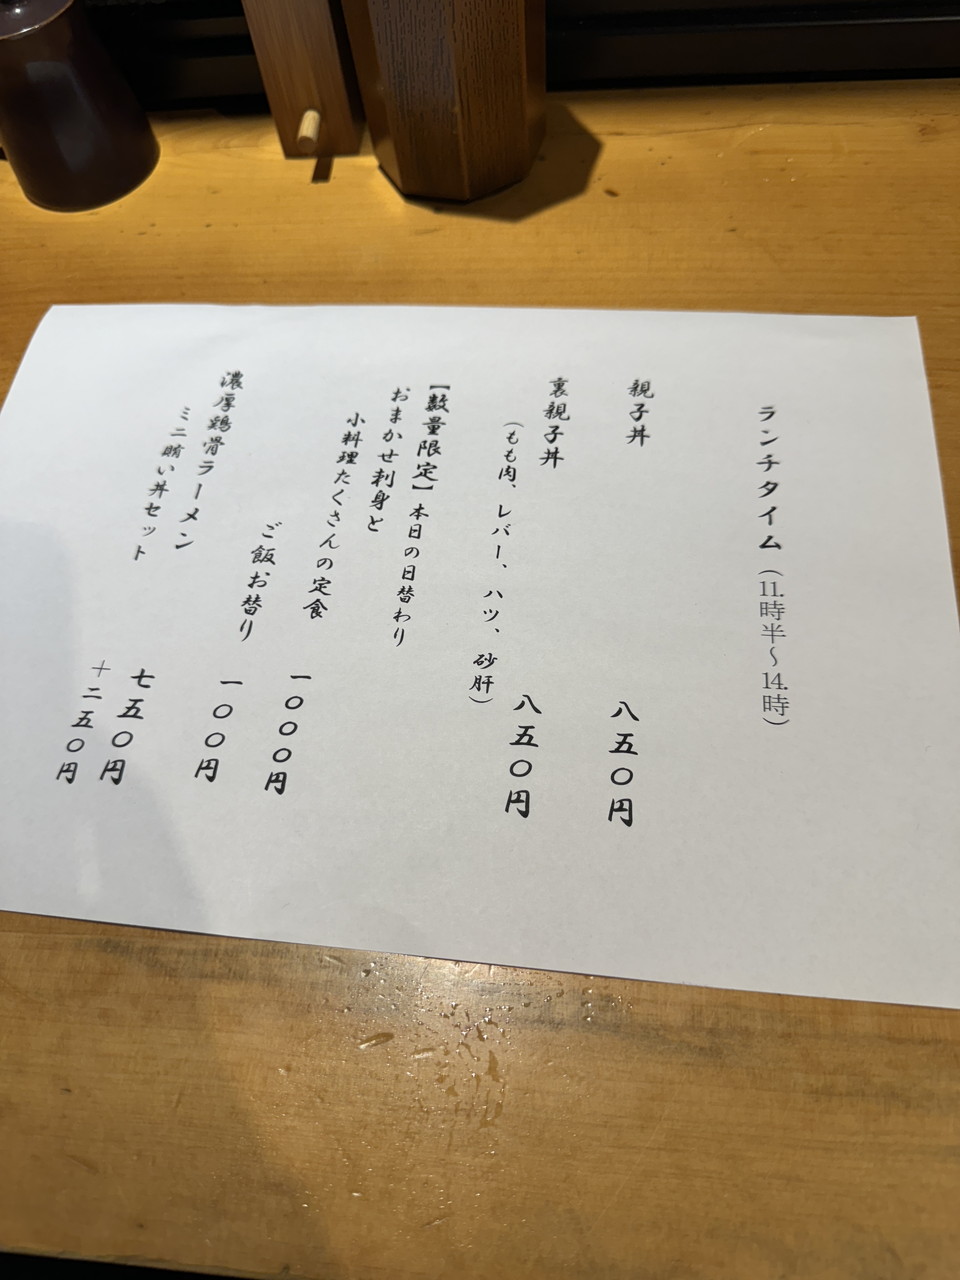 ランチタイム（11.時半～14.時）
親子丼　八五〇円
裏親子丼　八五〇円
（もも肉、レバー、ハツ、砂肝）
【数量限定】本日の日替わり
おまかせ刺身と
小料理たくさんの定食　一〇〇〇円
ご飯お替り　一〇〇円
濃厚鶏骨ラーメン　七五〇円
ミニ賄い丼セット　＋二五〇円